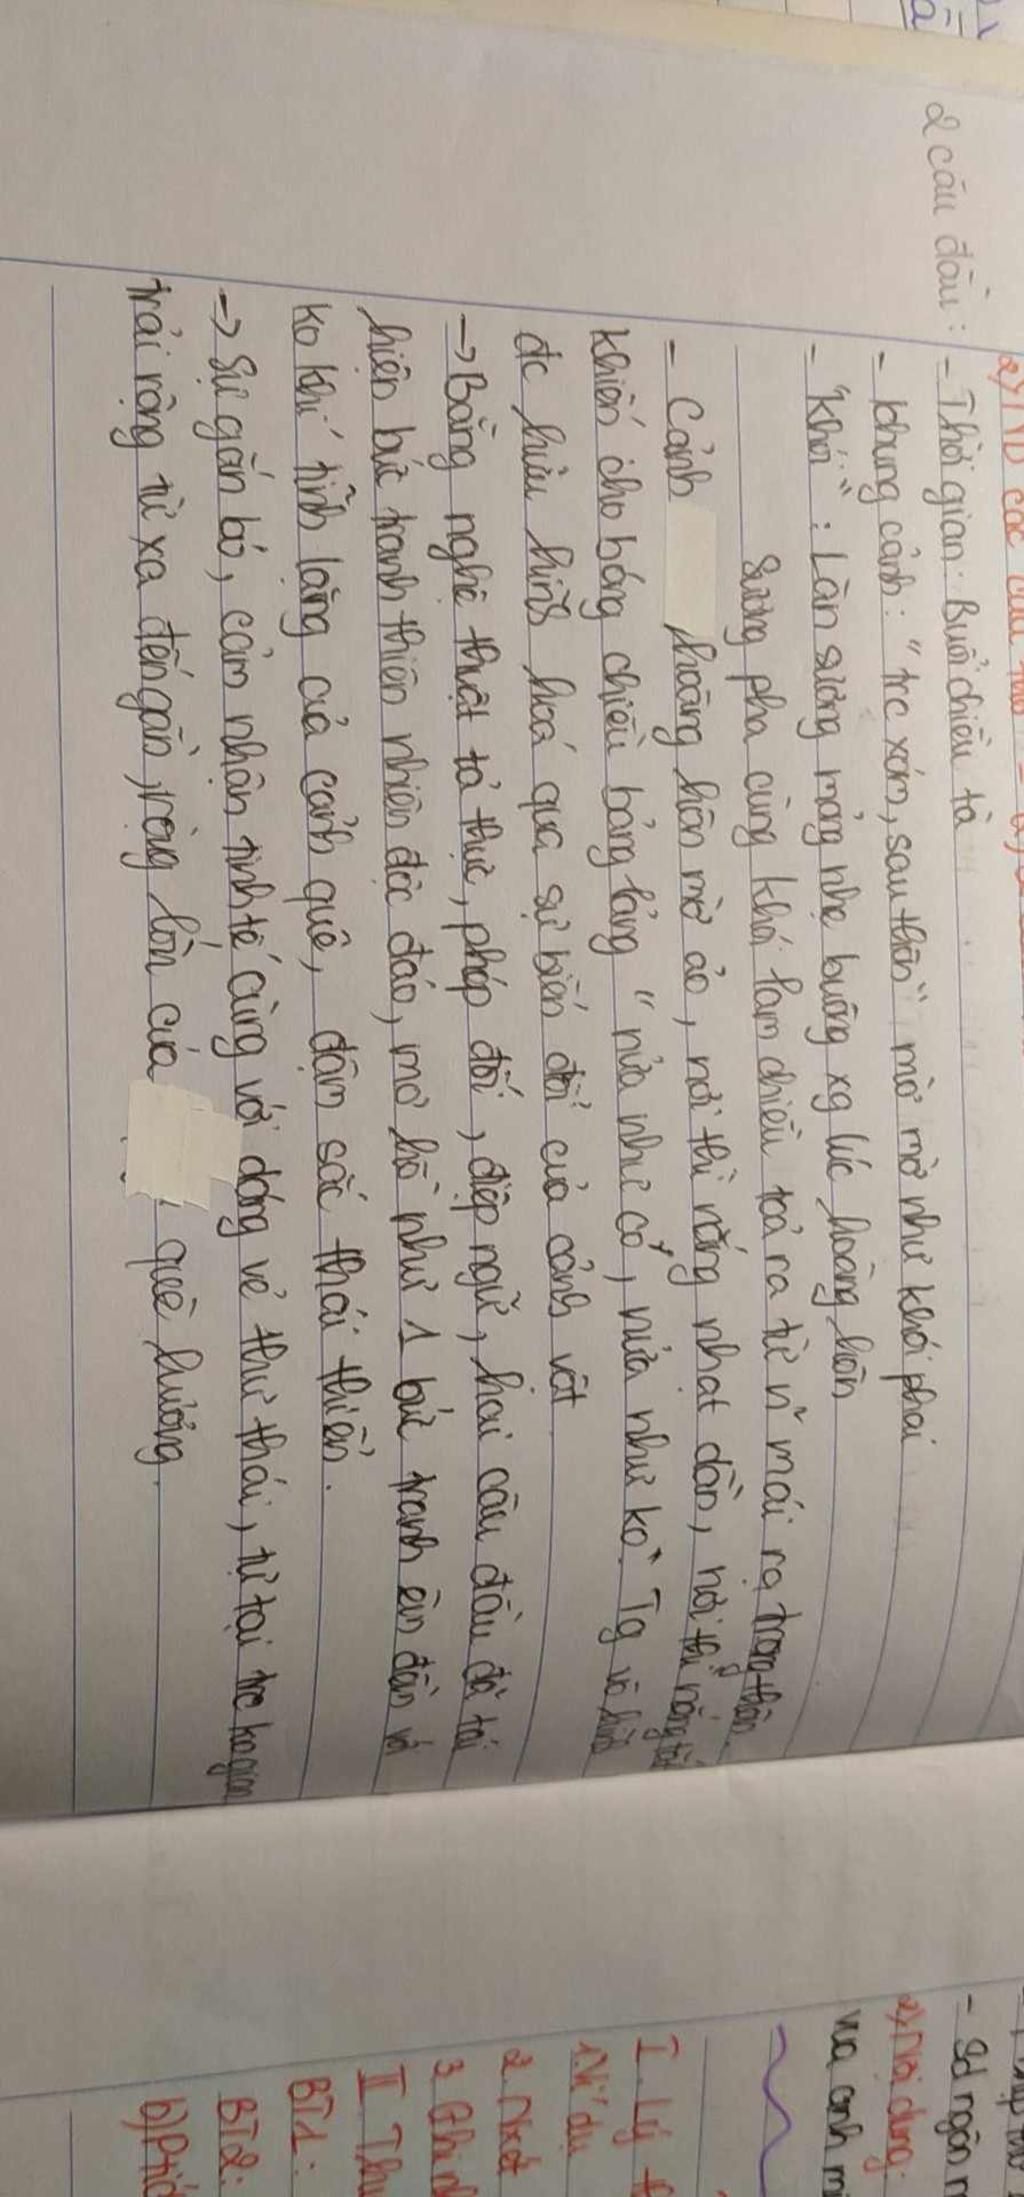 2 câu đầu : - Thời gian: Buổi chiều tà
- khung cảnh: "trc xóm, sau thôn" mờ mờ như khói phai
- "khói" : Làn sương mỏng nhẹ buông xg lúc hoàng hôn
Sương pha cùng khói lam chiều toả ra từ n~ mái rạ trong thôn.
- Cảnh hoàng hôn mờ ảo, nơi thì nắng nhạt dần, nơi thì nắng tắt
khiến cho bóng chiều bảng lảng "nửa như có, nửa như ko" Tg vô hình
đc hữu hình hoá qua sự biến đổi của cảnh vật
-> Bằng nghệ thuật tả thực, phép đối, điệp ngữ, hai câu đầu đã tái
hiện bức tranh thiên nhiên độc đáo, mơ hồ như 1 bức tranh ẩn đần với
ko khí tĩnh lặng của cảnh quê, đậm sắc thái thiền.
-> Sự gắn bó, cảm nhận tinh tế cùng với dáng vẻ thư thái, tự tại trc ko gian
trải rộng từ xa đến gần, rộng lớn của quê hương.
- Sd ngôn
2) Nội dung:
vua anh mi
I. Lý t
1. Ví dụ
2. Nxét
3. Ghi n
II Thự
BT1:
BT2:
b) Phé